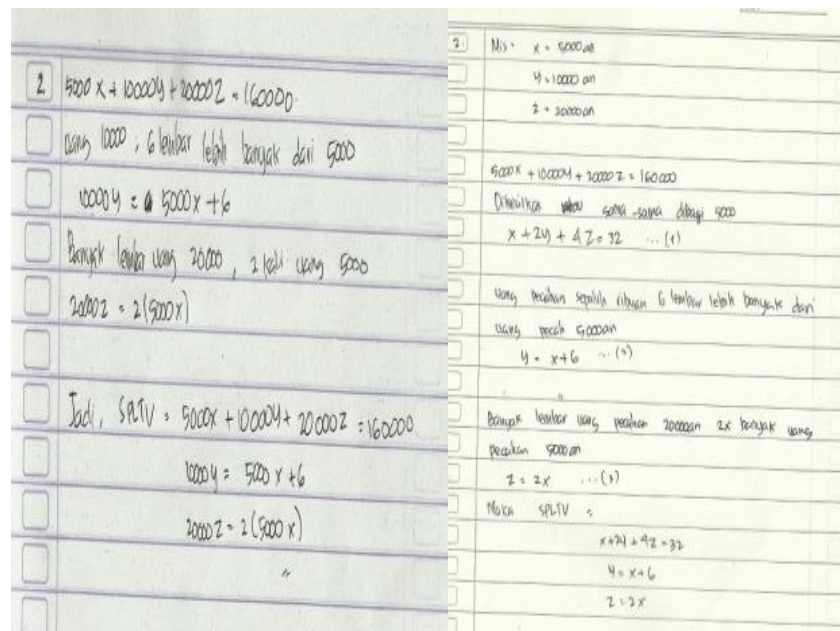 2
5000 x + 10000y + 20000z = 160000.
uang 10000 : 6 lembar lebih banyak dari 5000
10000y = 5000x + 6
Banyak lembar uang 20000, 2 kali uang 5000
20000z = 2(5000x)
Jadi, SPLTV = 5000x + 10000y + 20000z = 160000
10000y = 5000x + 6
20000z = 2(5000x)
2.
Mis : x = 5000 an
y = 10000 an
z = 20000an
5000x + 10000y + 20000z = 160000
sama-sama dibagi 5000
x + 2y + 4z = 32 ... (1)
uang pecahan sepuluh ribuan 6 lembar lebih banyak dari
uang pecah 5000an
y = x+6 ... (2)
Banyak lembar uang pecahan 20000an 2x banyak uang
pecahan 5000an
z = 2x ... (3)
Maka SPLTV =
x+2y+4z=32
y = x+6
z = 2x